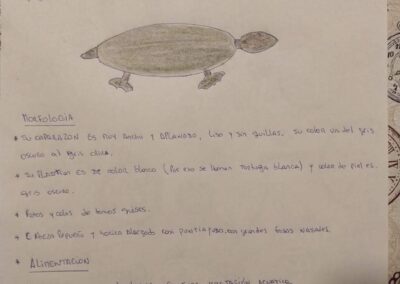 MORFOLOGIA
* SU CAPARAZON ES MUY ancho Y APLANADO, Liso Y sin quillas. su color va del gris
oscuro al gris claro.
* SU PLASTRON ES DE color blanco (Por eso se llaman tortuga blanca) Y color de piel es
gris oscuro.
* Patas y colas de tonos grises.
* Cabeza Pequeña Y hocico Alargado casi puntiagudo, con grandes fosas nasales.
* ALIMENTACION